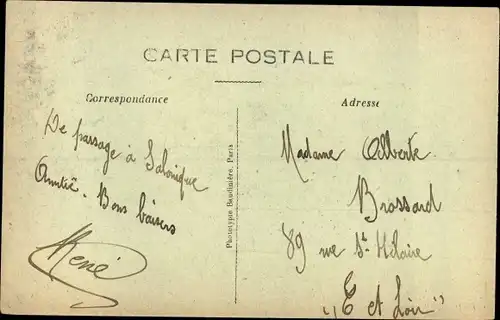 CARTE POSTALE
Correspondance
De passage à Salonique
Amitié. Bons baisers
René
Phototypie Baudinière, Paris
Adresse
Madame Alberte
Brossard
89 rue St Hilaire
"E et Loir"